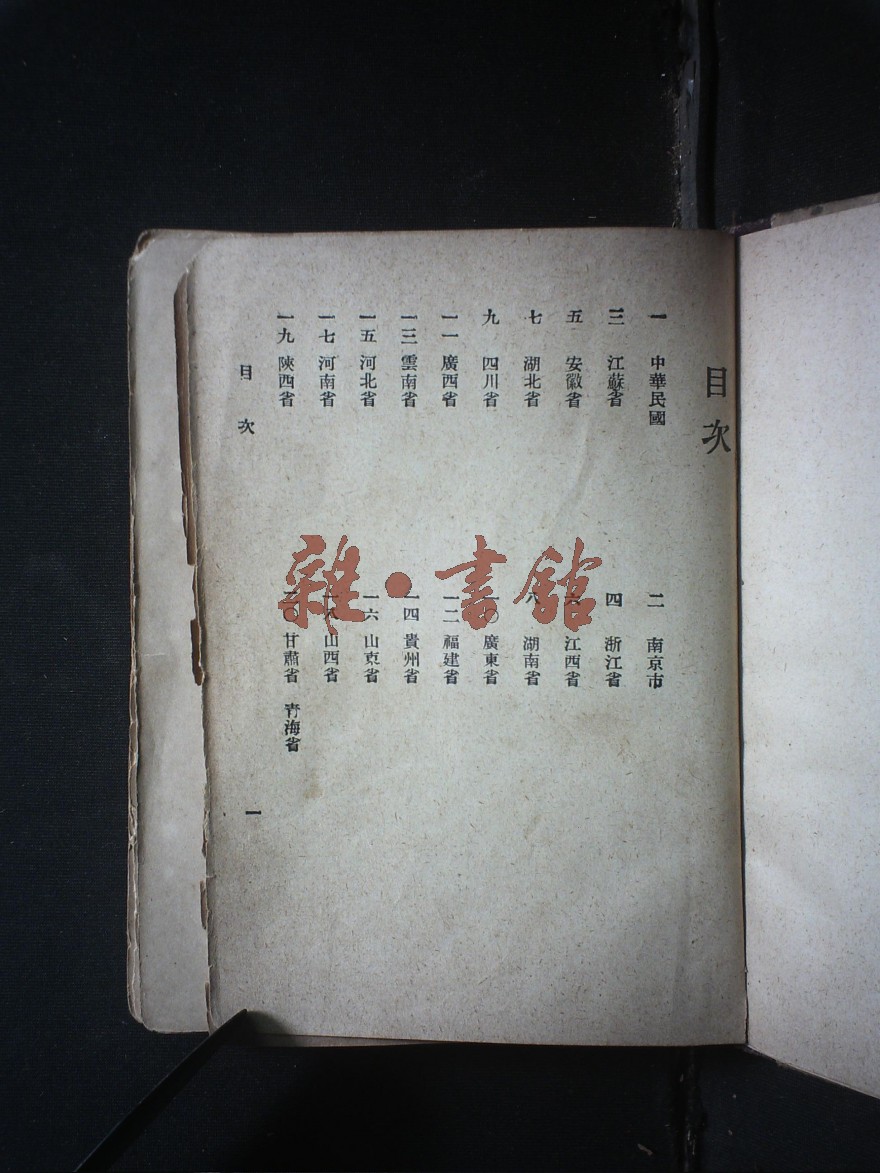 目次
一 中華民國
二 南京市
三 江蘇省
四 浙江省
五 安徽省
六 江西省
七 湖北省
八 湖南省
九 四川省
一〇 廣東省
一一 廣西省
一二 福建省
一三 雲南省
一四 貴州省
一五 河北省
一六 山東省
一七 河南省
一八 山西省
一九 陝西省
二〇 甘肅省 青海省
目次
一
雜·書館